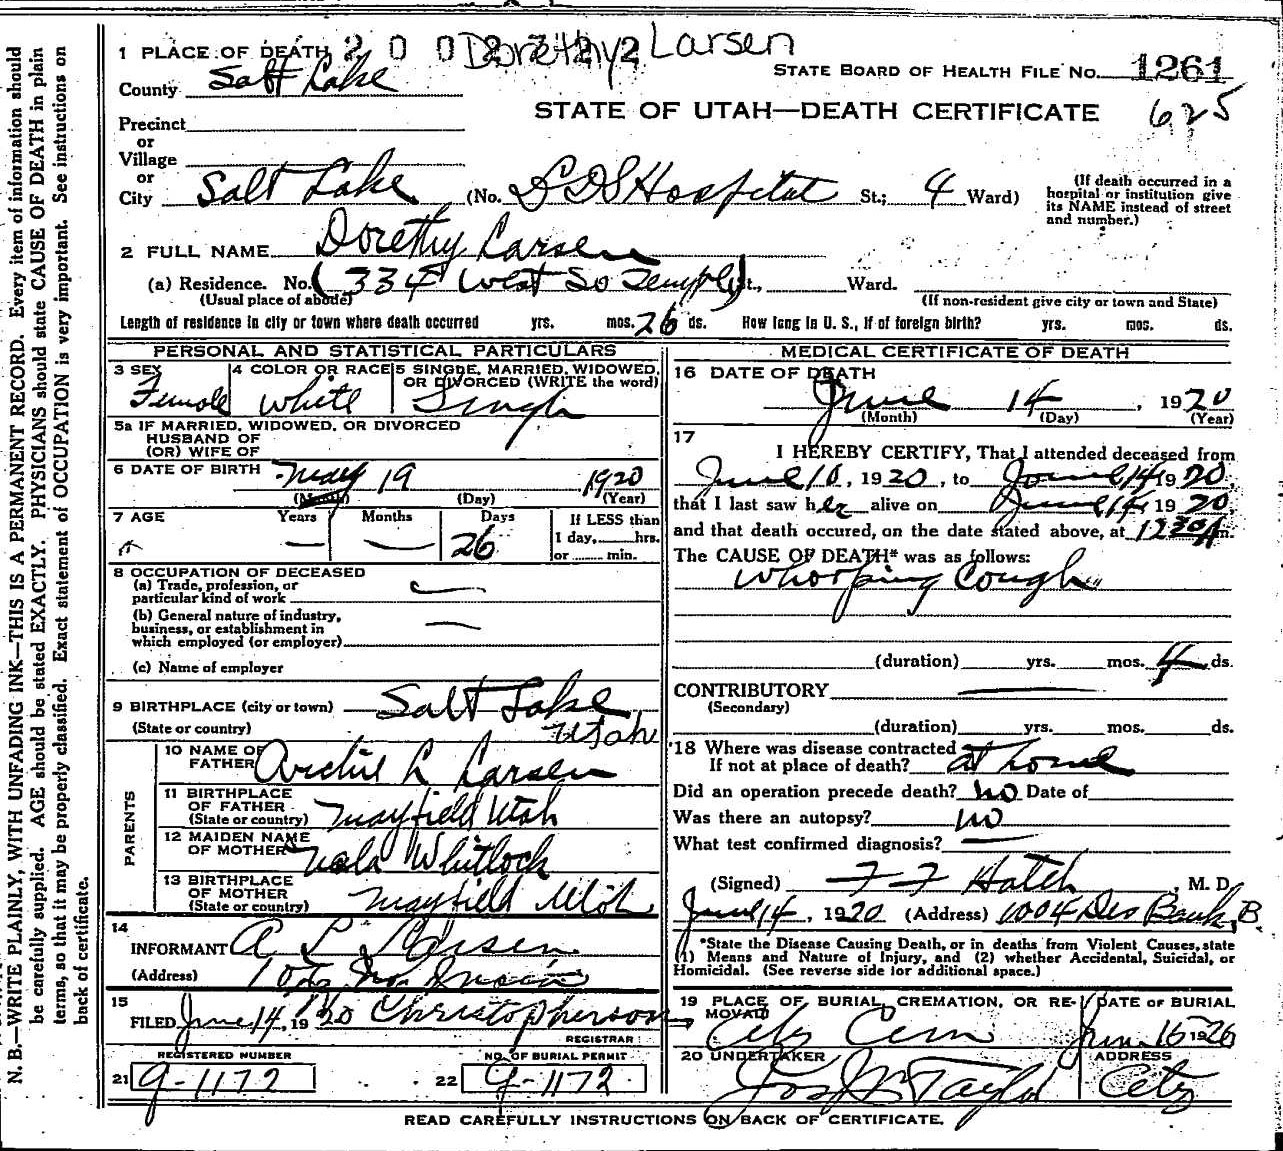 N. B.—WRITE PLAINLY, WITH UNFADING INK—THIS IS A PERMANENT RECORD. Every item of information should
be carefully supplied. AGE should be stated EXACTLY. PHYSICIANS should state CAUSE OF DEATH in plain
terms, so that it may be properly classified. Exact statement of OCCUPATION is very important. See instructions on
back of certificate.
1 PLACE OF DEATH
Dorethy Larsen
County Salt Lake
STATE BOARD OF HEALTH FILE No. 1261
STATE OF UTAH—DEATH CERTIFICATE 625
Precinct
or
Village
or
City Salt Lake (No. LDS Hospital St.; 4 Ward)
(If death occurred in a
hospital or institution give
its NAME instead of street
and number.)
2 FULL NAME Dorethy Larsen
(a) Residence. No. (334 West So Temple) St., Ward.
(Usual place of abode)
(If non-resident give city or town and State)
Length of residence in city or town where death occurred yrs. mos. 26 ds. How long in U. S., if of foreign birth? yrs. mos. ds.
PERSONAL AND STATISTICAL PARTICULARS
3 SEX
Female
4 COLOR OR RACE
White
5 SINGLE, MARRIED, WIDOWED,
OR DIVORCED (WRITE the word)
Single
5a IF MARRIED, WIDOWED, OR DIVORCED
HUSBAND OF
(OR) WIFE OF
6 DATE OF BIRTH May 19 1920
(Month) (Day) (Year)
7 AGE Years Months Days
— — 26
If LESS than
1 day, hrs.
or min.
8 OCCUPATION OF DECEASED
(a) Trade, profession, or
particular kind of work —
(b) General nature of industry,
business, or establishment in
which employed (or employer) —
(c) Name of employer
9 BIRTHPLACE (city or town) Salt Lake
(State or country) Utah
PARENTS
10 NAME OF
FATHER Archie L Larsen
11 BIRTHPLACE
OF FATHER
(State or country) Mayfield Utah
12 MAIDEN NAME
OF MOTHER Whitlock
13 BIRTHPLACE
OF MOTHER
(State or country) Mayfield Utah
14
INFORMANT A L Larsen
(Address)
15
FILED June 14, 1920 Christopherson
REGISTRAR
REGISTERED NUMBER
21 9-1172
NO. OF BURIAL PERMIT
22 9-1172
MEDICAL CERTIFICATE OF DEATH
16 DATE OF DEATH
June 14, 1920
(Month) (Day) (Year)
17
I HEREBY CERTIFY, That I attended deceased from
June 10, 1920, to June 14 1920,
that I last saw her alive on June 14, 1920,
and that death occured, on the date stated above, at 12 30 A m.
The CAUSE OF DEATH* was as follows:
Whooping Cough
(duration) yrs. mos. 4 ds.
CONTRIBUTORY —
(Secondary)
(duration) yrs. mos. ds.
18 Where was disease contracted
If not at place of death? at home
Did an operation precede death? no Date of
Was there an autopsy? no
What test confirmed diagnosis? —
(Signed) F F Hatch, M. D.
June 14, 1920 (Address) 1004 Des Bank B
*State the Disease Causing Death, or in deaths from Violent Causes, state
(1) Means and Nature of Injury, and (2) whether Accidental, Suicidal, or
Homicidal. (See reverse side for additional space.)
19 PLACE OF BURIAL, CREMATION, OR RE-
MOVAL
City Cem
DATE OF BURIAL
June 16 1920
20 UNDERTAKER
Jos Wm Taylor
ADDRESS
City
READ CAREFULLY INSTRUCTIONS ON BACK OF CERTIFICATE.